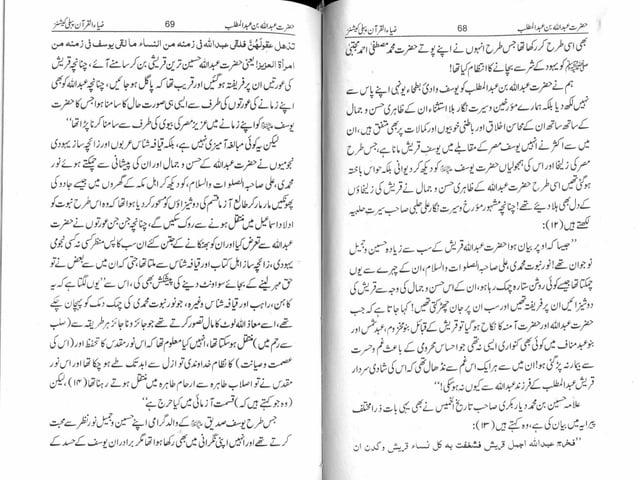 حضرت عبداللہ بن عبدالمطلب 68 ضیاء القرآن پبلی کیشنز
بھی اسی طرح کر رکھا تھا جس طرح انہوں نے اپنے پوتے حضرت محمد مصطفیٰ احمد مجتبیٰ
ﷺ کو یہود کے شر سے بچانے کا انتظام کیا تھا!
ہم نے حضرت عبداللہ بن عبدالمطلب کو یوسف وادی بطحاء یونہی اپنے پاس سے
نہیں لکھ دیا بلکہ ہمارے مؤرخین و سیرت نگار بلا استثناء ان کے ظاہری حسن و جمال
کے ساتھ ساتھ ان کے محاسن اخلاق اور باطنی خوبیوں اور کمالات پر بھی متفق ہیں، ان
میں سے اکثر نے انہیں یوسف مصر کے مقابلے میں یوسف قریش مانا ہے، جس طرح
مصر کی زلیخا اور اس کی ہمجولیاں حضرت یوسف کو دیکھ کر دیوانی بلکہ حواس باختہ
ہو گئی تھیں اسی طرح حضرت عبداللہ کے ظاہری حسن و جمال نے قریش کی زلیخاؤں
کے دل بھی ہلا دیئے تھے! چنانچہ مشہور مؤرخ و سیرت نگار علی حلبی صاحب سیرت حلبیہ
لکھتے ہیں (۱۲):
”جیسا کہ اوپر بیان ہوا حضرت عبداللہ قریش کے سب سے زیادہ حسین و جمیل
نوجوان تھے! نور نبوت محمدی علی صاحبہ الصلوات والسلام، ان کے چہرے سے یوں
چمکتا تھا جیسے کوئی روشن ستارہ چمک رہا ہو، ان کے اس حسن و جمال کی وجہ سے قریش کی
دوشیزائیں ان پر فریفتہ تھیں اور سب ان پر جان چھڑکتی تھیں! کہا جاتا ہے کہ جب
حضرت عبداللہ اور حضرت آمنہ کا نکاح ہو گیا تو قریش کے قبائل بنو مخزوم، عبد شمس اور
بنو عبد مناف میں کوئی بھی کنواری ایسی نہ تھی جو احساس محرومی کے باعث غم و حسرت
سے بیمار نہ پڑ گئی ہو! ان میں سے ہر ایک اس غم سے نڈھال تھی کہ اس کی شادی سردار
قریش عبدالمطلب کے فرزند عبداللہ سے کیوں نہ ہو گئی!“
علامہ حسین بن محمد دیار بکری صاحب تاریخ الخمیس نے بھی یہی بات ذرا مختلف
پیرایہ میں بیان کی ہے، وہ کہتے ہیں (۱۳):
”فخرج عبداللہ اجمل قریش فشغفت بہ کل نساء قریش وکدن ان
حضرت عبداللہ بن عبدالمطلب 69 ضیاء القرآن پبلی کیشنز
تذهل عقولهن فلقی عبداللہ فی زمنہ من النساء ما لقی یوسف فی زمنہ من
امراۃ العزیز! یعنی حضرت عبداللہ قریش کے حسین ترین قریشی بن کر سامنے آئے، چنانچہ قریش
کی عورتیں ان پر فریفتہ ہو گئیں اور قریب تھا کہ پاگل ہو جائیں، چنانچہ عبداللہ کو بھی
اپنے زمانے کی عورتوں کی طرف سے ایسی ہی صورت حال کا سامنا رہا جس کا حضرت
یوسف کو اپنے زمانے میں عزیز مصر کی بیوی کی طرف سے سامنا کرنا پڑا تھا“
یہ کوئی مبالغہ آمیزی نہیں ہے، بلکہ قیافہ شناس عربوں اور زائچہ ساز یہودی
نجومیوں نے حضرت عبداللہ کے حسن و جمال اور ان کی پیشانی سے چمکتے ہوئے نور
محمدی، علی صاحبہ الصلوات والسلام، کو دیکھ کر اہل مکہ کے گھروں میں جیسے جادو کی
پھونکیں مار مار کر طالع آزما قسم کی دوشیزاؤں کو دیوانہ بنا دیا تھا! وہ کسی طرح نبوت کو
اولاد اسماعیل میں منتقل ہونے سے روک سکیں گے، چنانچہ جن جن عورتوں نے حضرت
عبداللہ سے تعرض کیا اور ان کو بھنکانے کے جتن کئے ان سب کا پس منظر کسی نہ کسی نجومی
یہودی، زائچہ ساز اہل کتاب اور قیافہ شناس سے ملتا تھا حتی کہ ان میں سے بعض نے تو
حق مہر لینے کے بجائے سو اونٹ دینے کی پیشکش بھی کی، اس لئے ان میں یہ
کاہن، راہب اور قیافہ شناس وغیرہ، جو نور نبوت محمدی کی چمک دمک کو پہچان چکے
تھے، اسے معاذ اللہ لوٹ کا مال تصور کرتے تھے جو جائز و ناجائز ہر طریقہ سے (صلب
سے رحم میں) منتقل ہو سکتا تھا، انہیں کیا معلوم تھا کہ اس نور مقدس کا تحفظ اور (اس کی
عصمت و صیانت) کا نظام خداوندی تو ازل سے ابد تک طے ہو چکا تھا اور اس نور
مقدس نے تو اصلاب طاہرہ سے ارحام طاہرہ میں منتقل ہوتے رہنا تھا (۱۴)، لیکن
(وہ جو کہتے ہیں کہ) قسمت آزمانے میں کیا حرج ہے“
جس طرح یوسف صدیق کے والد گرامی اپنے حسین و جمیل نور نظر سے محبت
کرتے تھے اور انہیں اپنی نگرانی میں بھی رکھا ہوا تھا، مگر برادران یوسف کے حسد کے